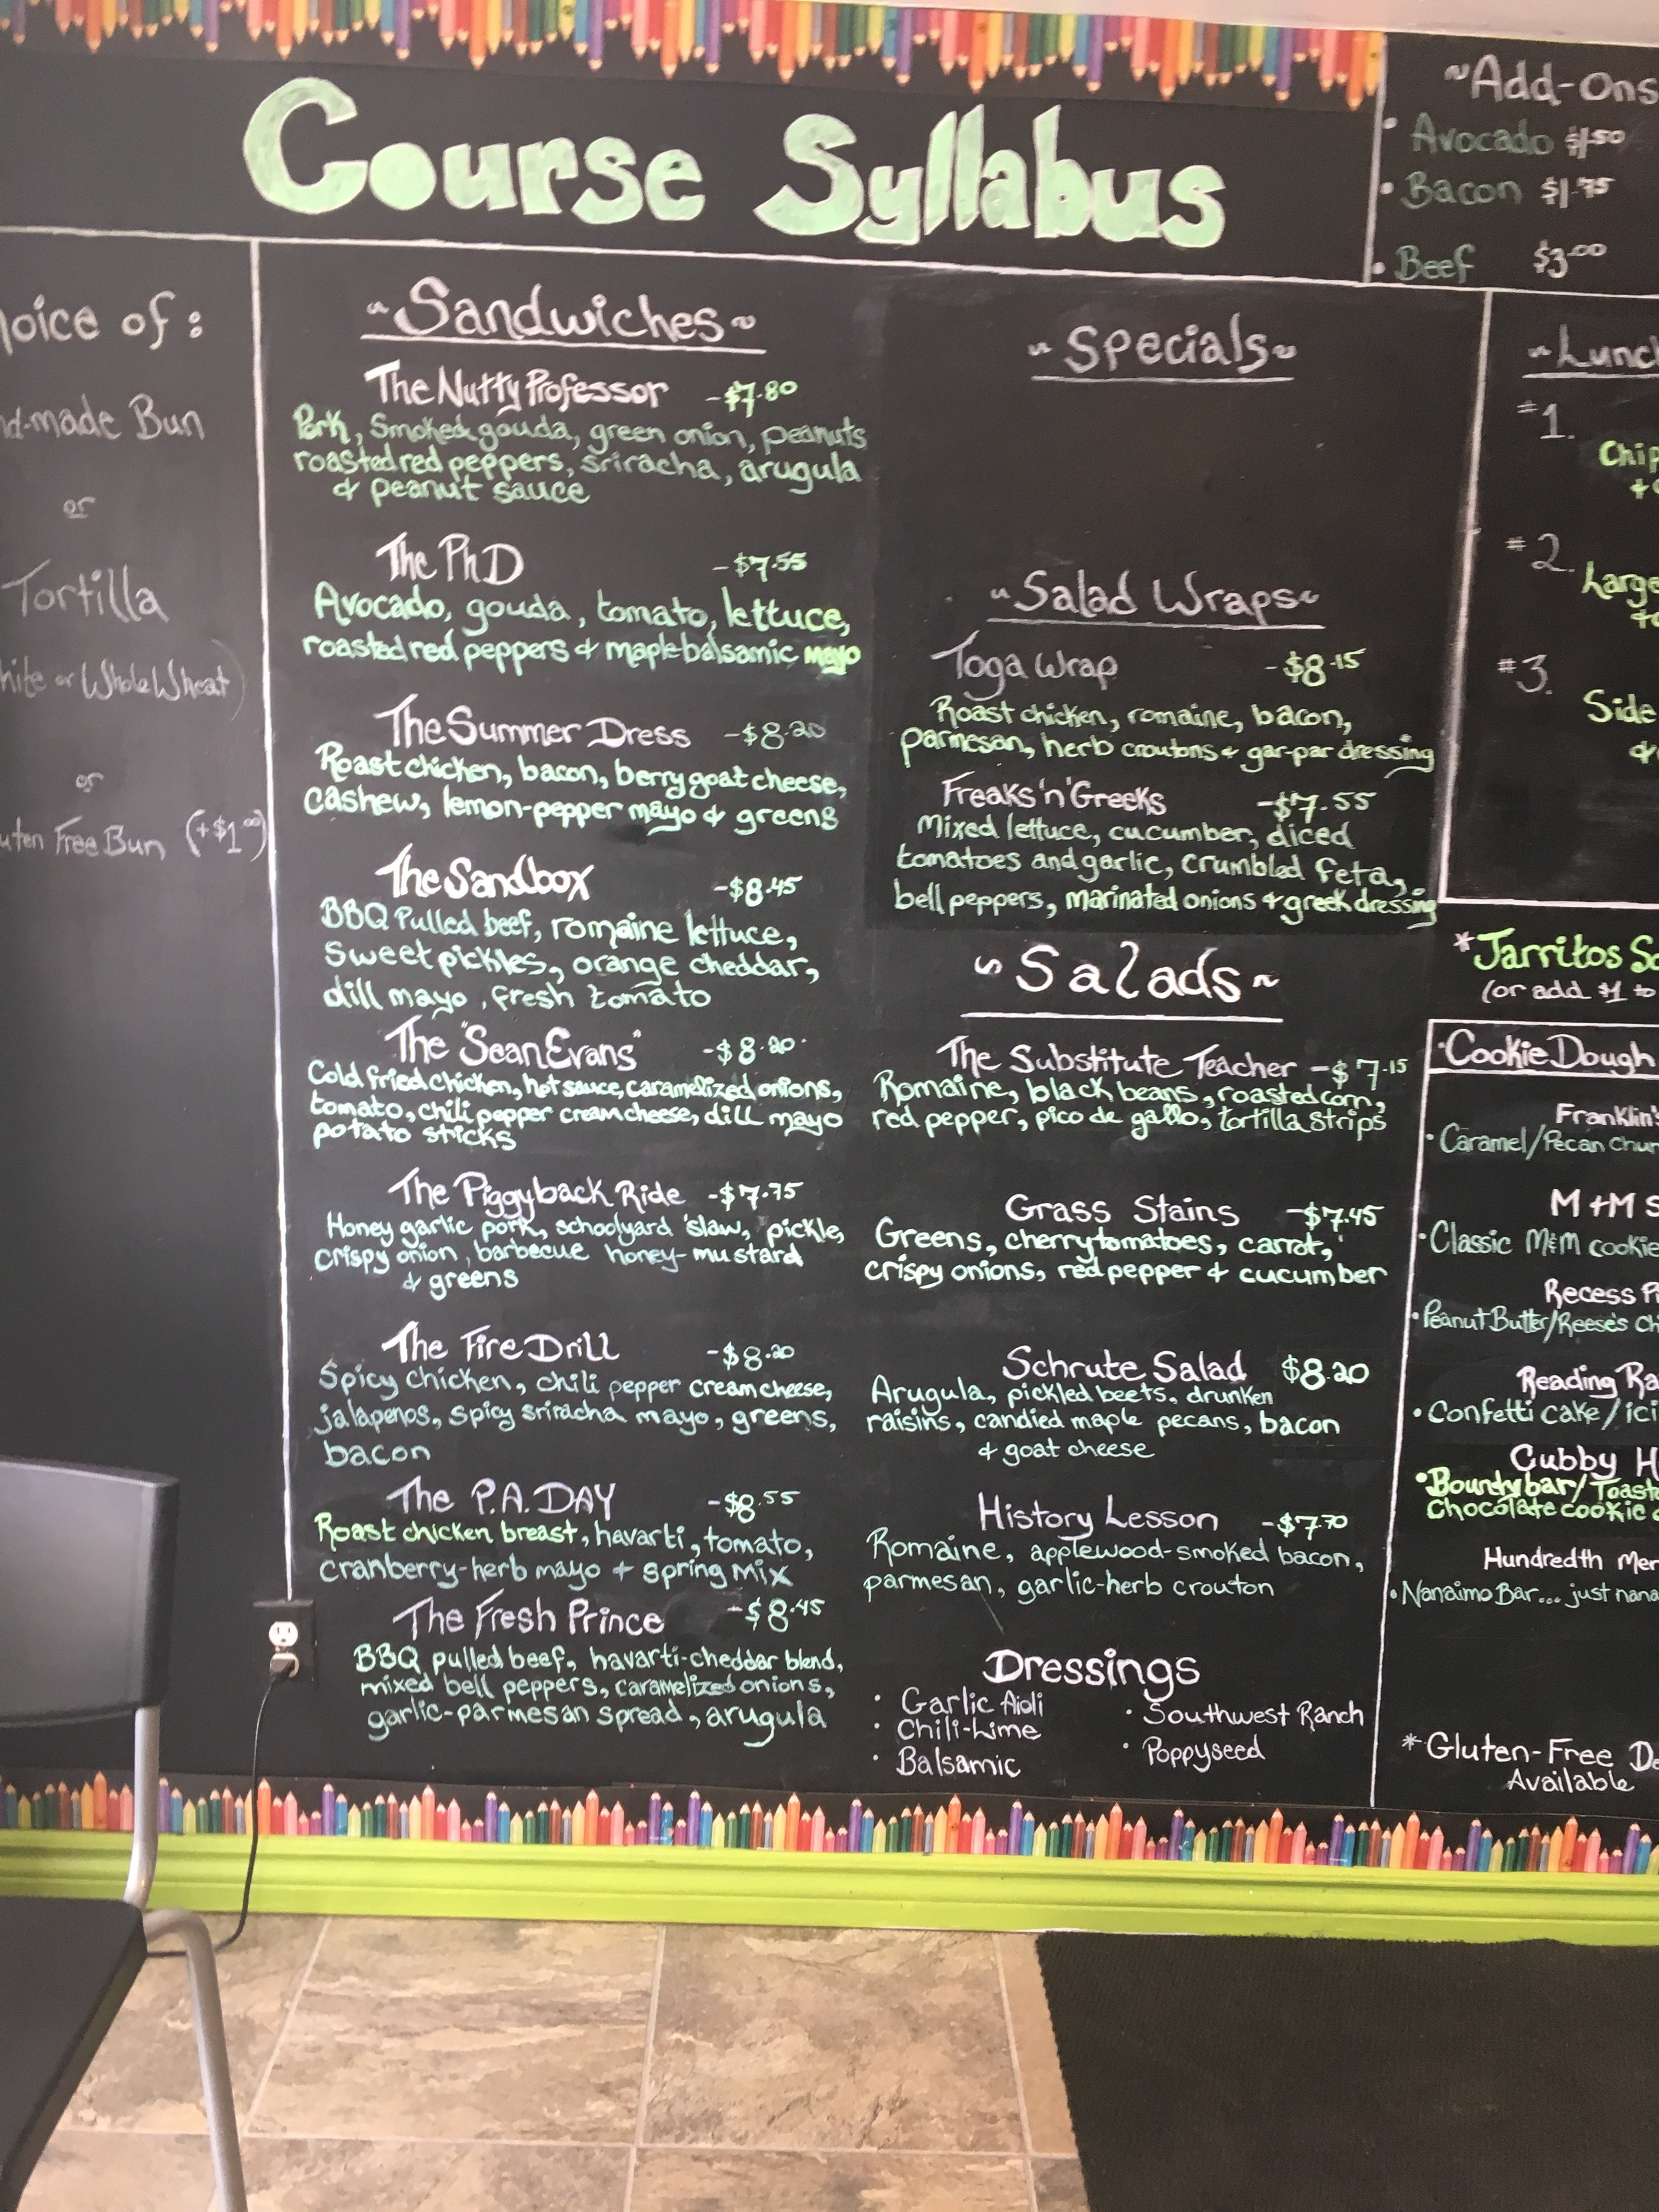 Course Syllabus
~Add-Ons
• Avocado $1.50
• Bacon $1.75
• Beef $3.00
of:
Bun
or
Tortilla
or Whole Wheat)
or
Free Bun (+$1.00)
~Sandwiches~
The Nutty Professor -$7.80
Pork, Smoked gouda, green onion, peanuts
roasted red peppers, sriracha, arugula
& peanut sauce
The PhD -$7.55
Avocado, gouda, tomato, lettuce,
roasted red peppers & maple balsamic mayo
The Summer Dress -$8.20
Roast chicken, bacon, berry goat cheese,
cashew, lemon-pepper mayo & greens
The Sandbox -$8.45
BBQ Pulled beef, romaine lettuce,
Sweet pickles, orange cheddar,
dill mayo, fresh tomato
The "Sean Evans" -$8.20
Cold fried chicken, hot sauce, caramelized onions,
tomato, chili pepper cream cheese, dill mayo
potato sticks
The Piggyback Ride -$7.75
Honey garlic pork, schoolyard 'slaw, pickle,
crispy onion, barbecue honey-mustard
& greens
The Fire Drill -$8.20
Spicy chicken, chili pepper cream cheese,
jalapenos, spicy sriracha mayo, greens,
bacon
The P.A. DAY -$8.55
Roast chicken breast, havarti, tomato,
cranberry-herb mayo + spring mix
The Fresh Prince -$8.45
BBQ pulled beef, havarti-cheddar blend,
mixed bell peppers, caramelized onions,
garlic-parmesan spread, arugula
~Specials~
~Salad Wraps~
Toga Wrap -$8.15
Roast chicken, romaine, bacon,
parmesan, herb croutons & gar-par dressing
Freaks 'n' Greeks -$7.55
Mixed lettuce, cucumber, diced
tomatoes and garlic, crumbled feta,
bell peppers, marinated onions & greek dressing
~Salads~
The Substitute Teacher -$7.15
Romaine, black beans, roasted corn,
red pepper, pico de gallo, tortilla strips
Grass Stains -$7.45
Greens, cherry tomatoes, carrot,
crispy onions, red pepper & cucumber
Schrute Salad $8.20
Arugula, pickled beets, drunken
raisins, candied maple pecans, bacon
& goat cheese
History Lesson -$7.70
Romaine, applewood-smoked bacon,
parmesan, garlic-herb crouton
Dressings
• Garlic Aioli
• Chili-Lime
• Balsamic
• Southwest Ranch
• Poppyseed
#1.
#2.
Large
#3.
Side
*Jarritos
(or add $1 to
Cookie Dough
Franklin's
• Caramel/Pecan
M+M
• Classic M&M cookie
Recess
• Peanut Butter/Reese's
Reading
• Confetti cake/
Cubby
• Bounty bar/
Chocolate cookie
Hundredth
• Nanaimo Bar... just
*Gluten-Free
Available